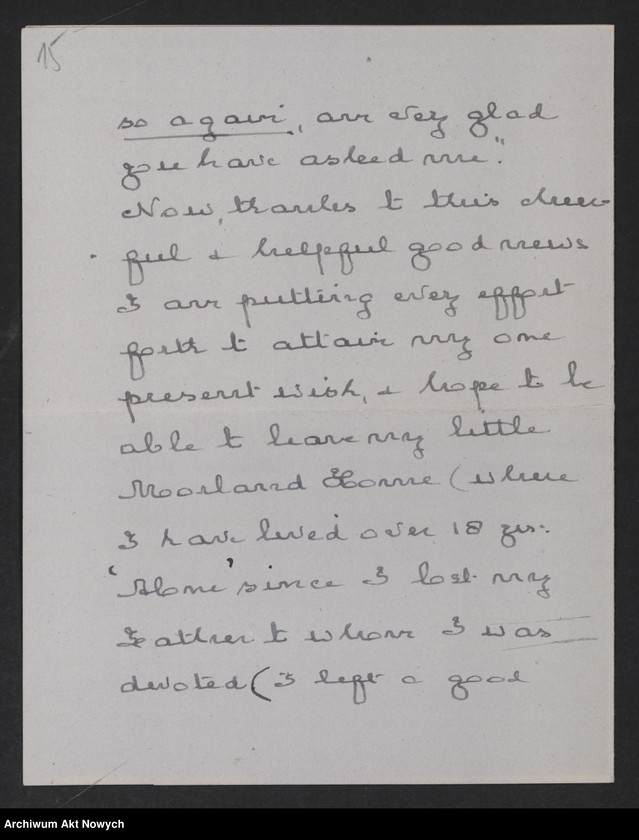 15
so again, am very glad
you have asked me."
Now, thanks to this cheer-
ful & helpful good news
I am putting every effort
forth to attain my one
present wish, & hope to be
able to leave my little
Moorland Home (where
I have lived over 18 yrs.
'Alone' since I lost my
Father to whom I was
devoted (I left a good
Archiwum Akt Nowych